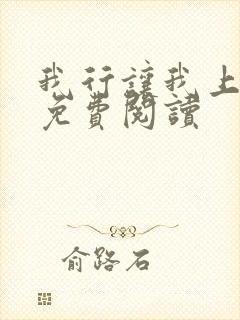 我行讓我上
免費閱讀
俞路石